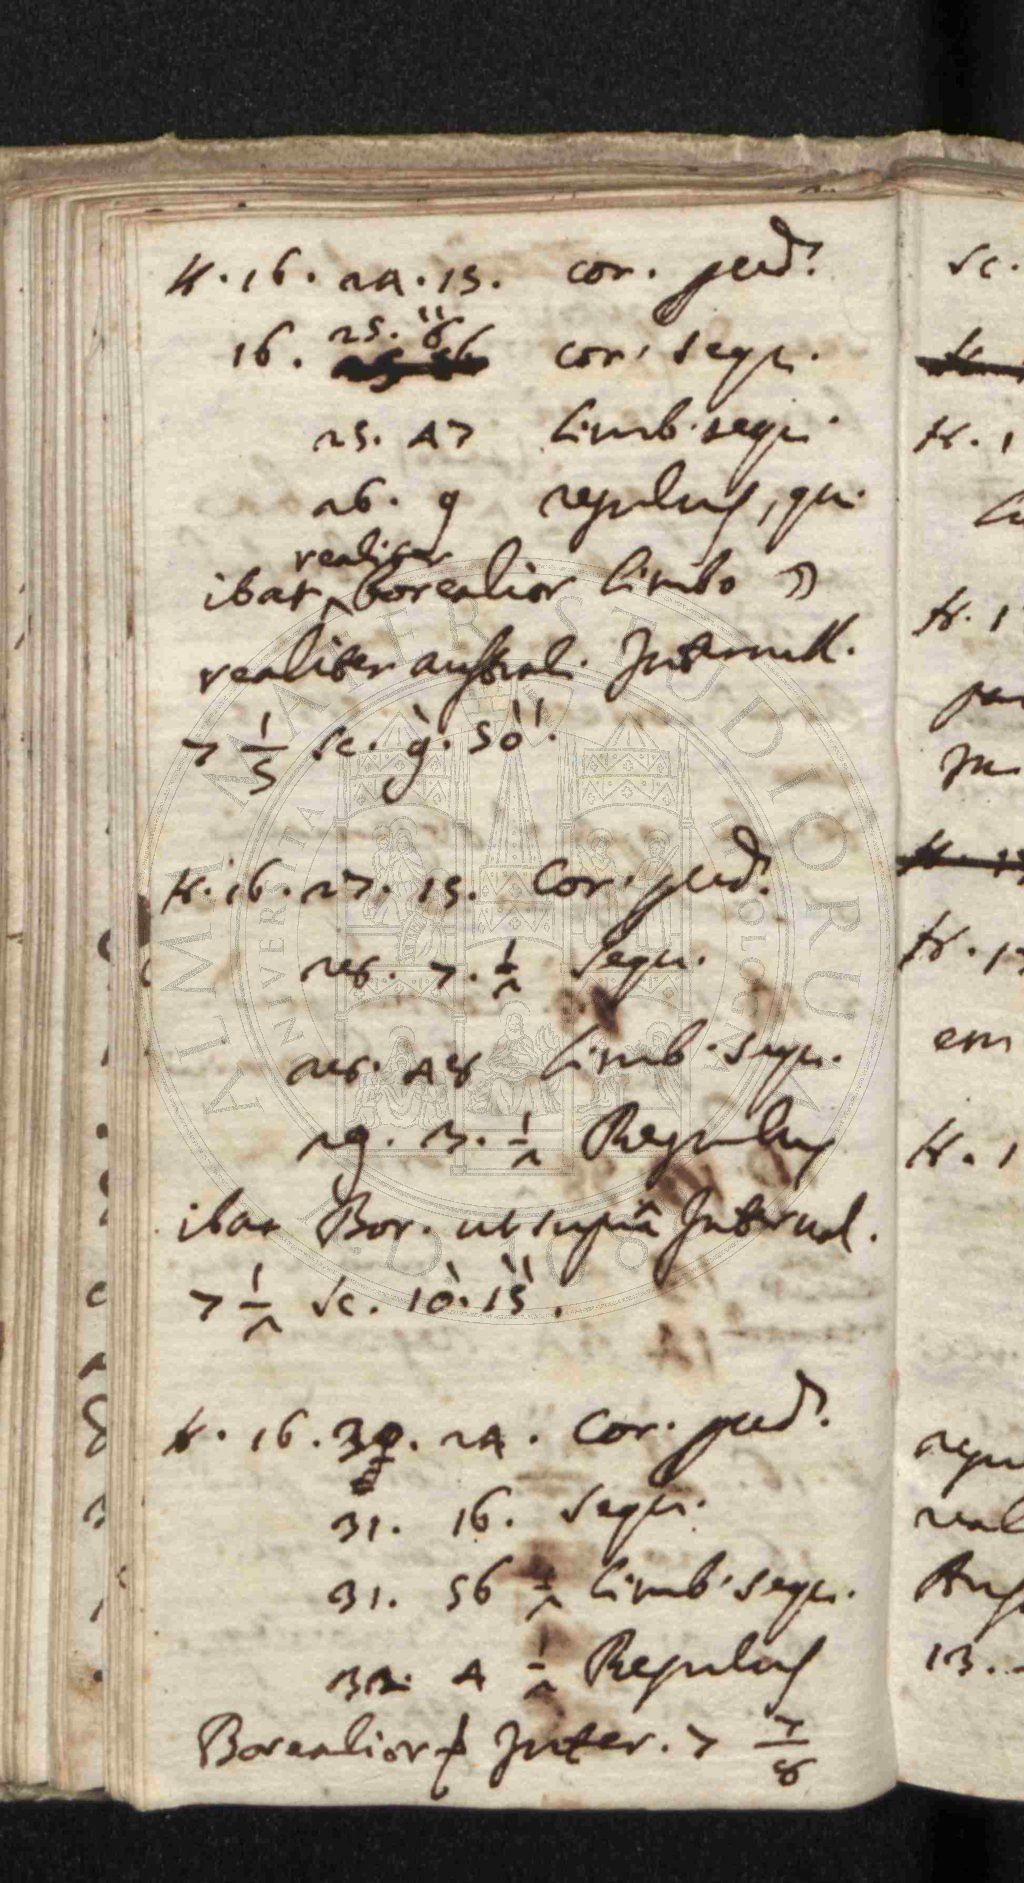 H. 16. 24. 15. cor. pred.
16. 25. 6''
cor. sequ.
25. 47 limb. sequ.
26. 9 regulus, qui
realiter
ibat ^ borealior limbo ☽
realiter australi Intervall.
7 1/5 sc. 9'. 50''.
H. 16. 27. 15. Cor. pred.
28. 7. 1/2 sequ.
28. 48 limb. sequ.
29. 3. 1/2 Regulus
ibat Bor. ut supra Interval.
7 1/2 sc. 10'. 15''.
H. 16. 30. 24. Cor. pred.
31. 16. sequ.
31. 56 1/2 limb. sequ.
32. 4 1/2 Regulus
Borealior Inter. 7 7/8
sc.
H. 1
H. 1
H. 17
H. 17
em
H. 1
regu
real
Aus
13.
ALMA MATER STUDIORUM
UNIVERSITA DI BOLOGNA
A.D. 1088